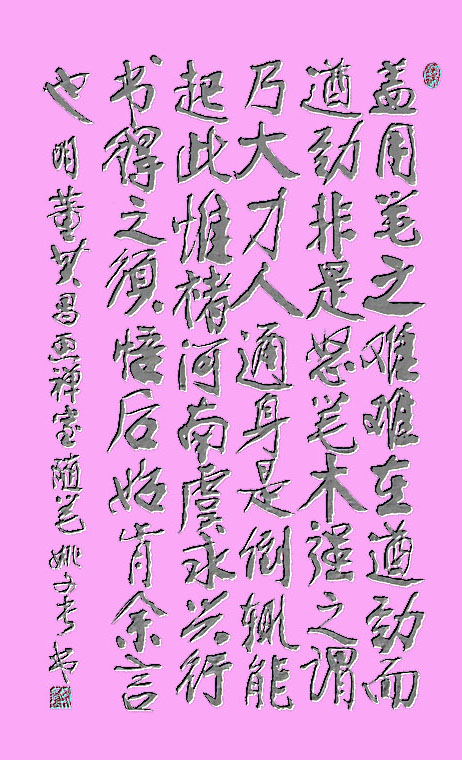 盖用笔之难难在遒劲而
遒劲非是怒笔木强之谓
乃大才人通身是倒辄能
起此惟褚河南虞永兴行
书得之须悟后始肯余言
也 明董其昌画禅室随笔 姚文书